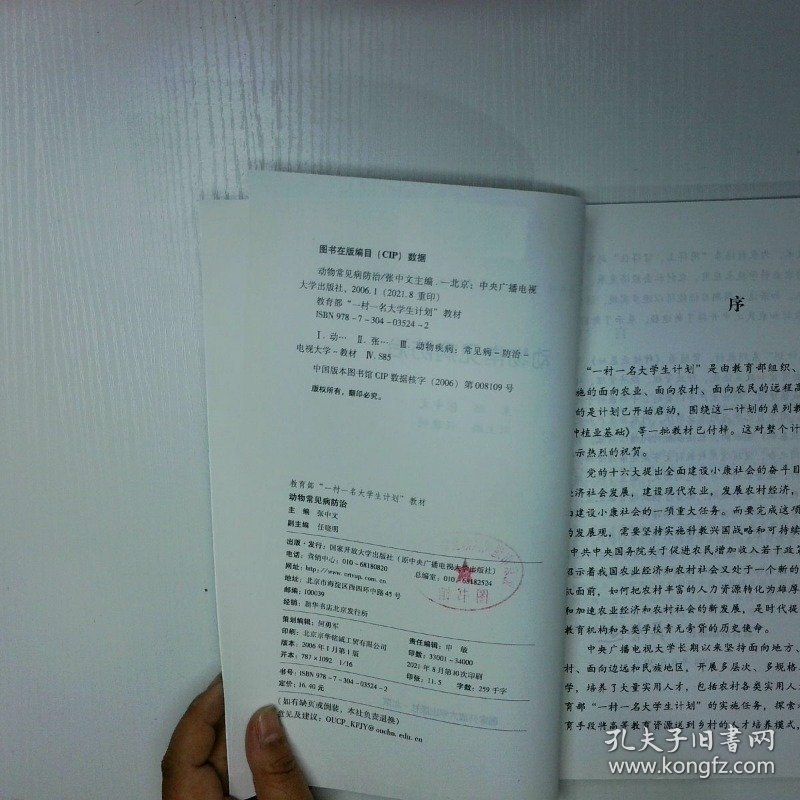 图书在版编目（CIP）数据
动物常见病防治/张中文主编.—北京：中央广播电视
大学出版社，2006.1（2021.8 重印）
教育部“一村一名大学生计划”教材
ISBN 978-7-304-03524-2
Ⅰ.动… Ⅱ.张… Ⅲ.动物疾病：常见病-防治-
电视大学-教材 Ⅳ.S85
中国版本图书馆CIP数据核字（2006）第008109号
版权所有，翻印必究。
教育部“一村一名大学生计划”教材
动物常见病防治
主 编 张中文
副主编 任晓明
出版·发行：国家开放大学出版社（原中央广播电视大学出版社）
电话：营销中心：010-68180820 总编室：010-68182524
网址：http://www.crtvup.com.cn
地址：北京市海淀区西四环中路45号
邮编：100039
经销：新华书店北京发行所
策划编辑：何勇军 责任编辑：申敏
印刷：北京京华铭诚工贸有限公司 印数：33001-34000
版本：2006年1月第1版 2021年8月第10次印刷
开本：787×1092 1/16 印张：11.5 字数：259千字
书号：ISBN 978-7-304-03524-2
定价：16.40元
（如有缺页或倒装，本社负责退换）
意见及建议：OUCP_KFJY@ouchn.edu.cn
序
“一村一名大学生计划”是由教育部组织、
施的面向农业、面向农村、面向农民的远程高
的是计划已开始启动，围绕这一计划的系列教
种植业基础》等一批教材已付梓。这对整个计
示热烈的祝贺。
党的十六大提出全面建设小康社会的奋斗目
经济社会发展，建设现代农业，发展农村经济，
建设小康社会的一项重大任务。而要完成这项
的发展观，需要坚持实施科教兴国战略和可持续
中共中央国务院关于促进农民增加收入若干政策
召示着我国农业经济和农村社会又处于一个新的
机面前，如何把农村丰富的人力资源转化为雄厚
和加速农业经济和农村社会的新发展，是时代提
教育机构和各类学校责无旁贷的历史使命。
中央广播电视大学长期以来坚持面向地方、
村、面向边远和民族地区，开展多层次、多规格
学，培养了大量实用人才，包括农村各类实用人
育部“一村一名大学生计划”的实施任务，探索
育手段将高等教育资源送到乡村的人才培养模式，
孔夫子旧书网
www.kongfz.com